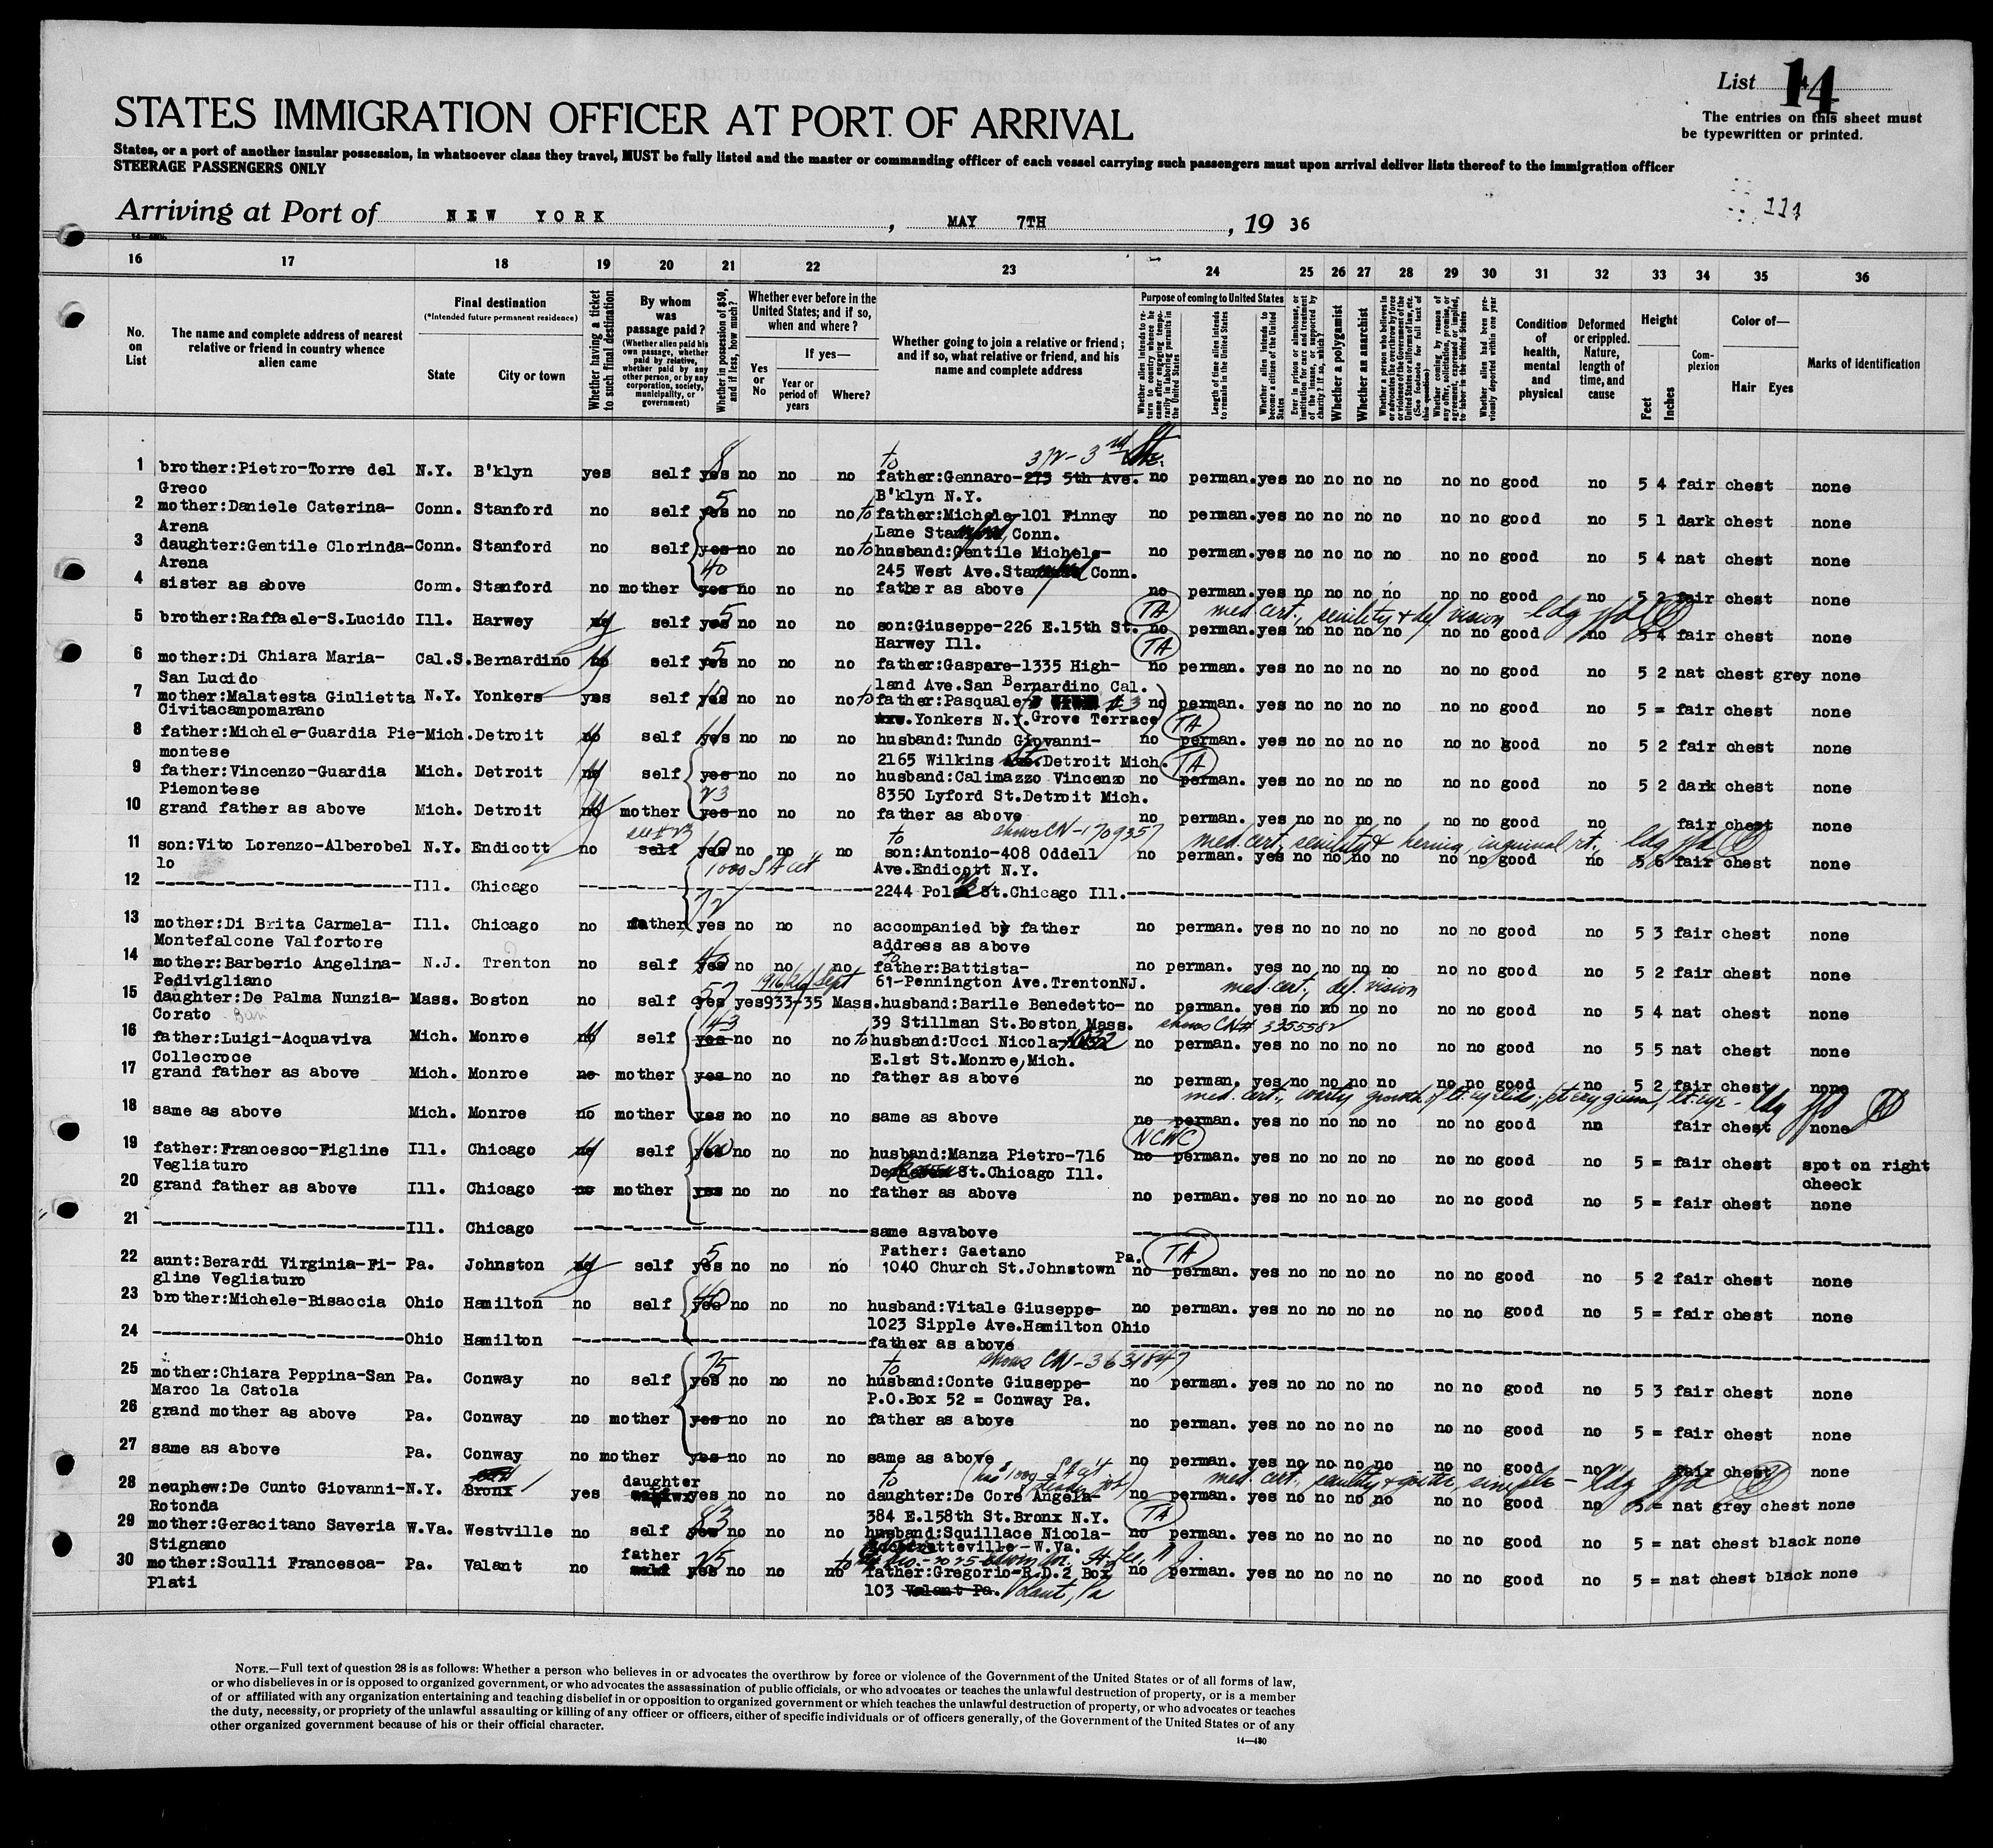 List 14
The entries on this sheet must
be typewritten or printed.
STATES IMMIGRATION OFFICER AT PORT OF ARRIVAL
States, or a port of another insular possession, in whatsoever class they travel, MUST be fully listed and the master or commanding officer of each vessel carrying such passengers must upon arrival deliver lists thereof to the immigration officer
STEERAGE PASSENGERS ONLY
Arriving at Port of NEW YORK, MAY 7TH, 19 36
111
16 17 18 19 20 21 22 23 24 25 26 27 28 29 30 31 32 33 34 35 36
No. on List
The name and complete address of nearest relative or friend in country whence alien came
Final destination
(*Intended future permanent residence)
State
City or town
Whether having a ticket to such final destination
By whom was passage paid?
(Whether alien paid his own passage, whether paid by relative, whether paid by any other person, or by any corporation, society, municipality, or government)
Whether in possession of $50, and if less, how much?
Whether ever before in the United States; and if so, when and where?
Yes or No
If yes—
Year or period of years
Where?
Whether going to join a relative or friend; and if so, what relative or friend, and his name and complete address
Purpose of coming to United States
Whether alien intends to return to country whence he came after engaging temporarily in laboring pursuits in the United States
Length of time alien intends to remain in the United States
Whether alien intends to become a citizen of the United States
Ever in prison or almshouse, or institution for care and treatment of the insane, or supported by charity? If so, which?
Whether a polygamist
Whether an anarchist
Whether a person who believes in or advocates the overthrow by force or violence of the Government of the United States or all forms of law, etc. (See footnote for full text of this question)
Whether coming by reason of any offer, solicitation, promise, or agreement, expressed or implied, to labor in the United States
Whether alien had been previously deported within one year
Condition of health, mental and physical
Deformed or crippled. Nature, length of time, and cause
Height
Feet
Inches
Complexion
Color of—
Hair Eyes
Marks of identification
to 372-3rd St.
1 brother:Pietro-Torre del N.Y. B'klyn yes self yes 8 no no no father:Gennaro-273 5th Ave. no perman. yes no no no no no no good no 5 4 fair chest none
Greco B'klyn N.Y.
2 mother:Daniele Caterina- Conn. Stanford no self yes 5 no no no to father:Michele-101 Finney no perman. yes no no no no no no good no 5 1 dark chest none
Arena Lane Stamford, Conn.
3 daughter:Gentile Clorinda- Conn. Stanford no self yes no no no to husband:Gentile Michele- no perman. yes no no no no no no good no 5 4 nat chest none
Arena 40 245 West Ave.Stamford Conn.
4 sister as above Conn. Stanford no mother yes no no no father as above no perman. yes no no no no no no good no 5 2 fair chest none
TA med. cert., senility & def vision - ldg
5 brother:Raffaele-S.Lucido Ill. Harwey self yes 5 no no no son:Giuseppe-226 E.15th St. no perman. yes no no no no no no good no 5 4 fair chest none
Harwey Ill. TA
6 mother:Di Chiara Maria- Cal. S.Bernardino no self yes 5 no no no father:Gaspare-1335 High- no perman. yes no no no no no no good no 5 2 nat chest grey none
San Lucido land Ave.San Bernardino Cal.
7 mother:Malatesta Giulietta N.Y. Yonkers yes self yes 10 no no no to father:Pasquale #3 no perman. yes no no no no no no good no 5 = fair chest none
Civitacampomarano Ave.Yonkers N.Y.Grove Terrace TA
8 father:Michele-Guardia Pie- Mich. Detroit no self yes no no no husband:Tundo Giovanni- no perman. yes no no no no no no good no 5 2 fair chest none
montese 2165 Wilkins St.Detroit Mich. TA
9 father:Vincenzo-Guardia Mich. Detroit no self yes no no no husband:Calimazzo Vincenzo no perman. yes no no no no no no good no 5 2 dark chest none
Piemontese 23 8350 Lyford St.Detroit Mich.
10 grand father as above Mich. Detroit no mother yes no no no father as above no perman. yes no no no no no no good no fair chest none
to shows CN-1709357 med. cert., senility & hernia, inguinal rt., ldg
11 son:Vito Lorenzo-Alberobel N.Y. Endicott no self yes 10 no no no son:Antonio-408 Oddell no perman. yes no no no no no no good no 5 6 fair chest none
lo Ave.Endicott N.Y.
12 Ill. Chicago 2244 Polk St.Chicago Ill.
72
13 mother:Di Brita Carmela- Ill. Chicago no father yes no no no accompanied by father no perman. yes no no no no no no good no 5 3 fair chest none
Montefalcone Valfortore address as above
14 mother:Barberio Angelina- N.J. Trenton no self yes 40 no no no to father:Battista- no perman. yes no no no no no no good no 5 2 fair chest none
Pedivigliano 61-Pennington Ave.TrentonNJ. med. cert., def. vision
15 daughter:De Palma Nunzia- Mass. Boston no self yes 57 yes 933-35 Mass. husband:Barile Benedetto- no perman. yes no no no no no no good no 5 4 nat chest none
Corato Bari 39 Stillman St.Boston Mass. shows CN# 3355582
16 father:Luigi-Acquaviva Mich. Monroe no self yes 43 no no no to husband:Ucci Nicola-1032 no perman. yes no no no no no no good no 5 5 nat chest none
Collecroce E.1st St.Monroe,Mich.
17 grand father as above Mich. Monroe no mother yes no no no father as above no perman. yes no no no no no no good no 5 2 fair chest none
med. cert., warty growth of lt. eyelids; pterygium, lt. eye - ldg
18 same as above Mich. Monroe no mother yes no no no same as above no perman. yes no no no no no no good no fair chest none
NCWC
19 father:Francesco-Figline Ill. Chicago no self yes 160 no no no husband:Manza Pietro-716 no perman. yes no no no no no no good no 5 = fair chest spot on right
Vegliaturo St.Chicago Ill. cheeck
20 grand father as above Ill. Chicago no mother yes no no no father as above no perman. yes no no no no no no good no 5 = fair chest none
21 Ill. Chicago same asvabove
Father: Gaetano Pa. TA
22 aunt:Berardi Virginia-Fi- Pa. Johnston self yes 5 no no no 1040 Church St.Johnstown no perman. yes no no no no no no good no 5 2 fair chest none
gline Vegliaturo
23 brother:Michele-Bisaccia Ohio Hamilton no self yes 40 no no no husband:Vitale Giuseppe- no perman. yes no no no no no no good no 5 = fair chest none
1023 Sipple Ave.Hamilton Ohio
24 Ohio Hamilton father as above
75 to shows CN-3631847
25 mother:Chiara Peppina-San Pa. Conway no self yes no no no husband:Conte Giuseppe- no perman. yes no no no no no no good no 5 3 fair chest none
Marco la Catola P.O.Box 52 = Conway Pa.
26 grand mother as above Pa. Conway no mother yes no no no father as above no perman. yes no no no no no no good no 5 = fair chest none
27 same as above Pa. Conway no mother yes no no no same as above no perman. yes no no no no no no good no fair chest none
to med. cert., senility & goiter, simple - ldg
28 neuphew:De Cunto Giovanni- N.Y. Bronx yes daughter yes no no no daughter:De Core Angela- no perman. yes no no no no no no good no 5 = nat grey chest none
Rotonda 384 E.158th St.Bronx N.Y. TA
29 mother:Geracitano Saveria W.Va. Westville no self yes 83 no no no husband:Squillace Nicola- no perman. yes no no no no no no good no 5 = nat chest black none
Stignano W.Va.
30 mother:Sculli Francesca- Pa. Valant no father self yes 25 no no no to father:Gregorio-R.D.2 Box no perman. yes no no no no no no good no 5 = nat chest black none
Plati 103 Valant Pa. Volant, Pa
NOTE.—Full text of question 28 is as follows: Whether a person who believes in or advocates the overthrow by force or violence of the Government of the United States or of all forms of law,
or who disbelieves in or is opposed to organized government, or who advocates the assassination of public officials, or who advocates or teaches the unlawful destruction of property, or is a member
of or affiliated with any organization entertaining and teaching disbelief in or opposition to organized government or which teaches the unlawful destruction of property, or who advocates or teaches
the duty, necessity, or propriety of the unlawful assaulting or killing of any officer or officers, either of specific individuals or of officers generally, of the Government of the United States or of any
other organized government because of his or their official character.
14—430